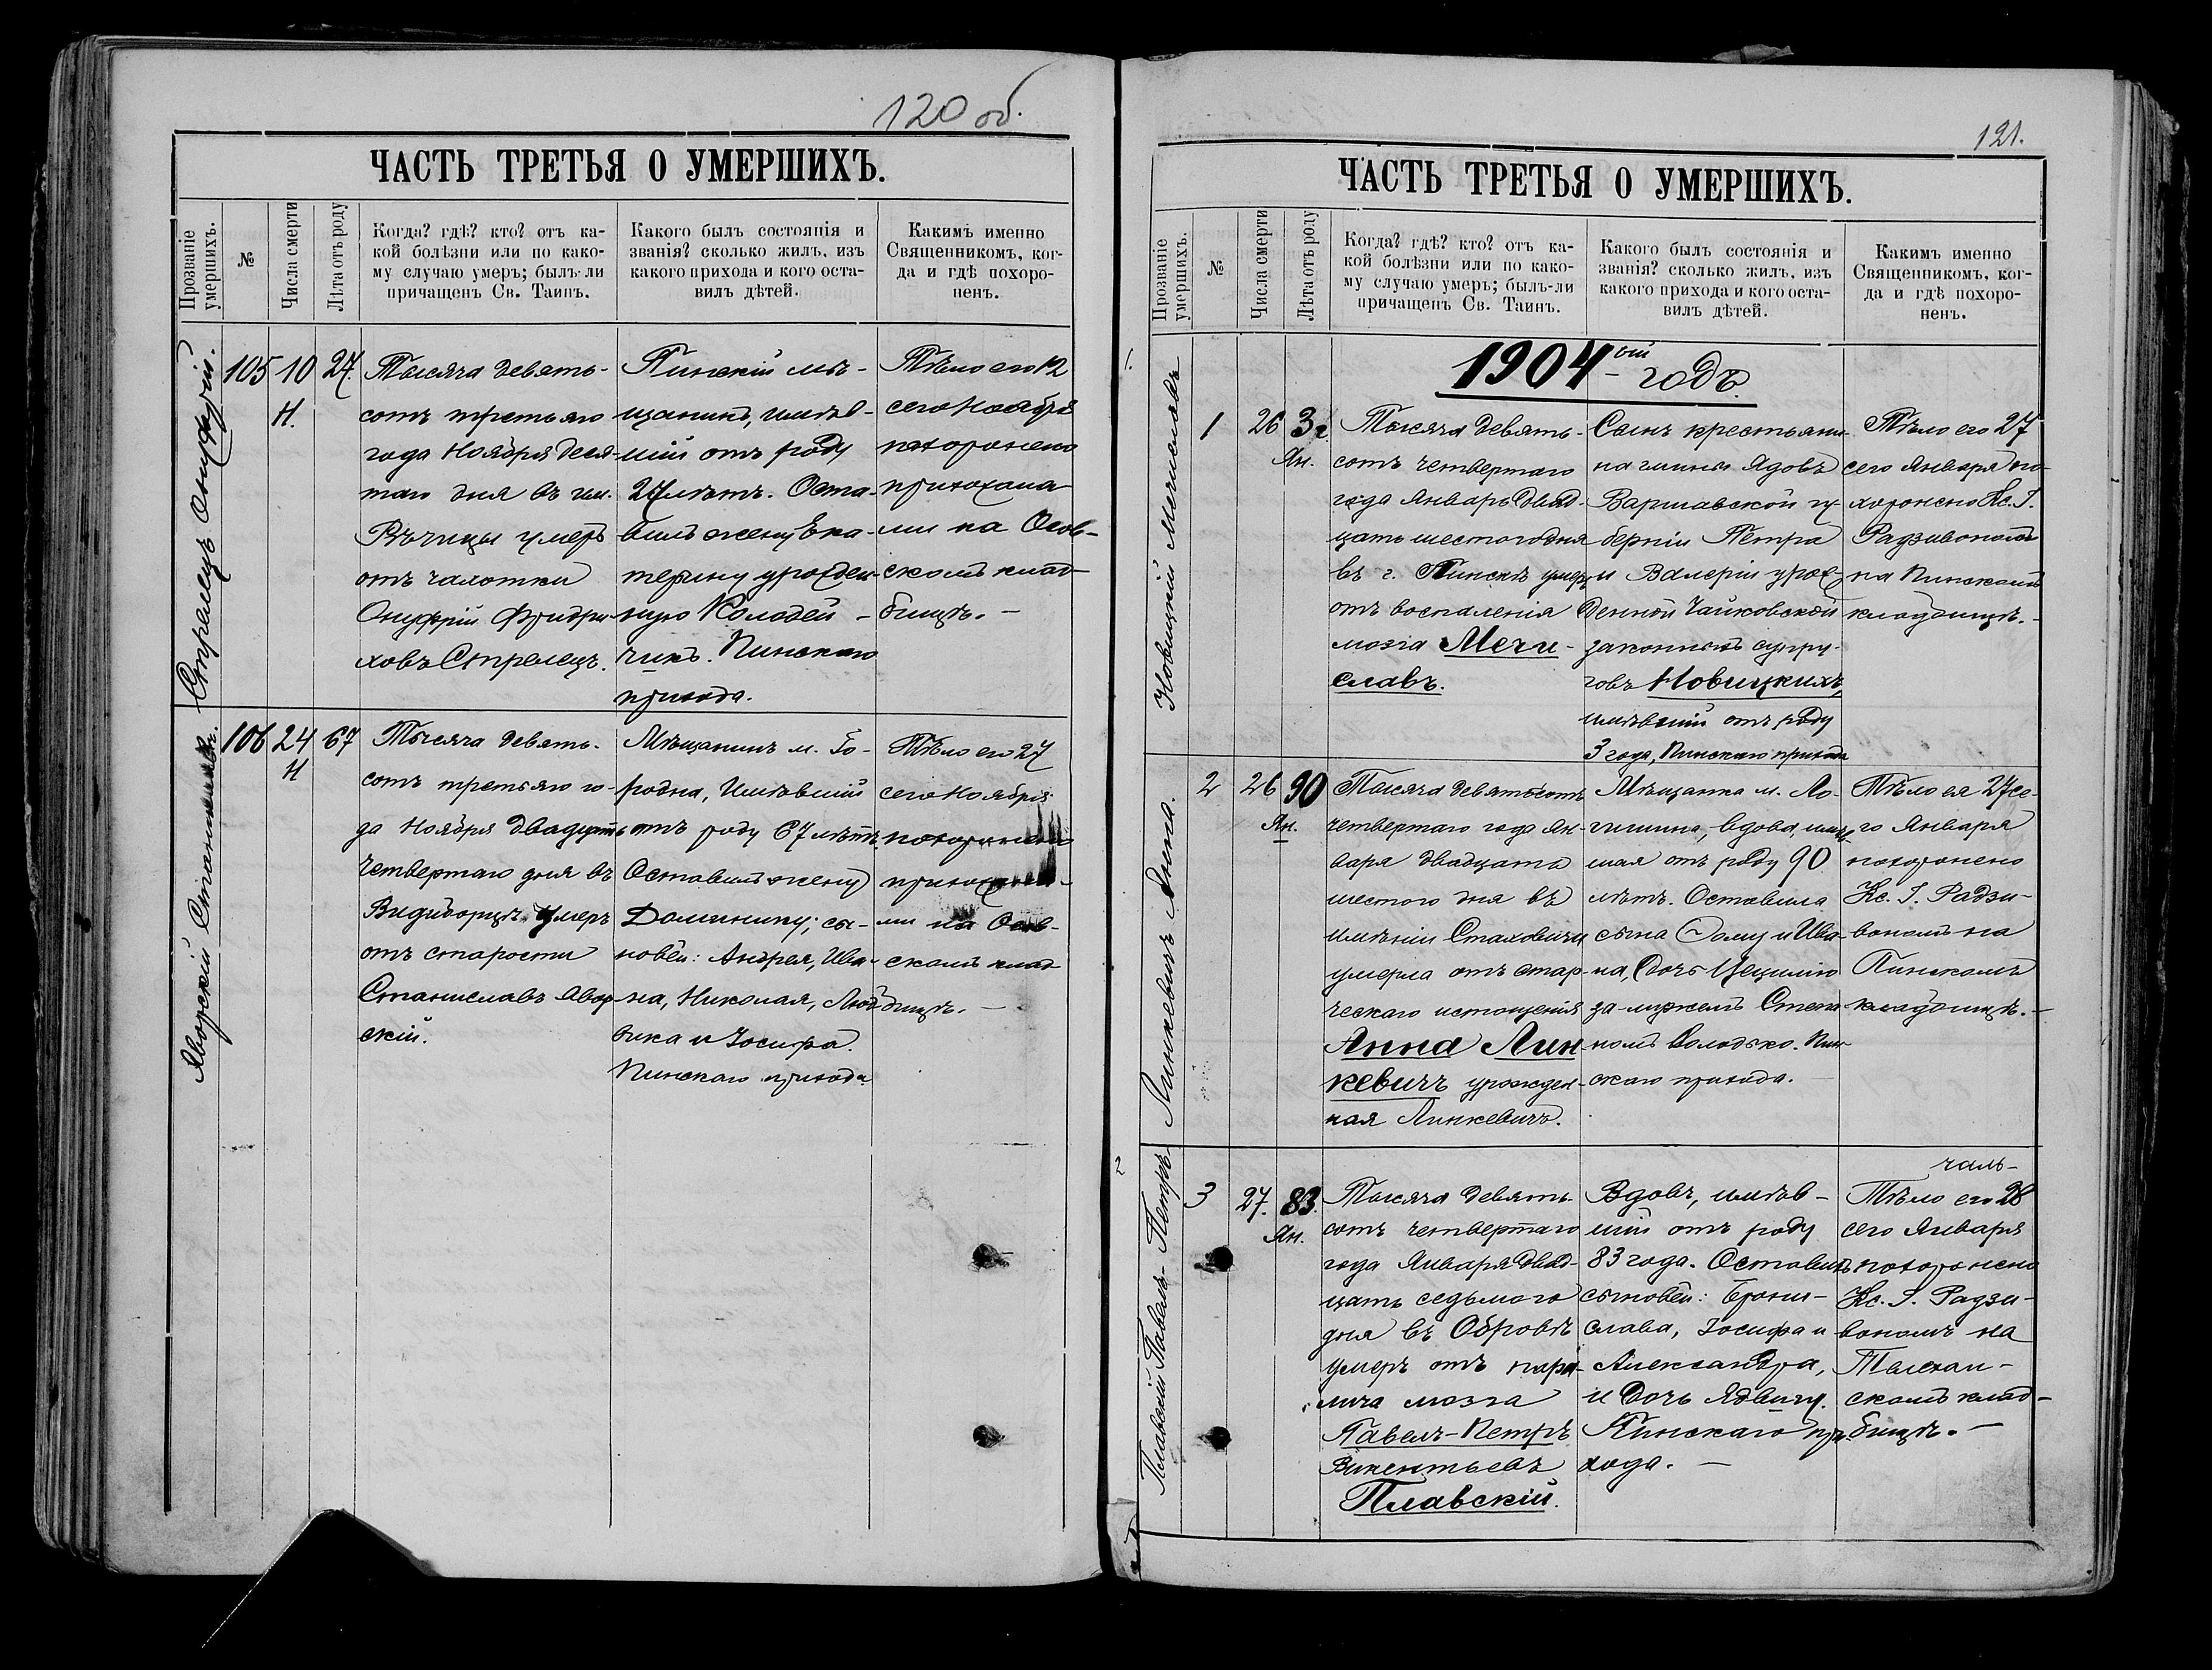 120 об.
ЧАСТЬ ТРЕТЬЯ О УМЕРШИХЪ.
Прозваніе умершихъ.
№
Числа смерти
Лѣта отъ роду
Когда? гдѣ? кто? отъ ка-
кой болѣзни или по како-
му случаю умеръ; былъ-ли
причащенъ Св. Таинъ.
Какого былъ состоянія и
званія? сколько жилъ, изъ
какого прихода и кого оста-
вилъ дѣтей.
Какимъ именно
Священникомъ, ког-
да и гдѣ похоро-
ненъ.
Стрелецъ Онуфрій.
105
10
Н.
27.
Тысяча девять-
сотъ третьяго
года Ноября деся-
таго дня въ им.
Рѣчицы умеръ
отъ чахотки
Онуфрій Фридри-
ховъ Стрелецъ.
Пинскій мѣ-
щанинъ, имѣв-
шій отъ роду
27 лѣтъ. Оста-
вилъ жену Ека-
терину урожден-
ную Колодей-
чикъ. Пинскаго
прихода.
Тѣло его 12
сего Ноября
похоронено
прихожана-
ми на Осов-
скомъ клад-
бищѣ. —
Яворскій Станиславъ.
106
24
Н
67
Тысяча девять-
сотъ третьяго го-
да Ноября двадцать
четвертаго дня въ
Видиборцѣ умеръ
отъ старости
Станиславъ Явор-
скій.
Мѣщанинъ м. Го-
родна, Имѣвшій
отъ роду 67 лѣтъ.
Оставилъ жену
Доминику; сы-
новей: Андрея, Ива-
на, Николая, Людо-
вика и Іосифа.
Пинскаго прихода
Тѣло его 27
сего Ноября
похоронено
прихожана-
ми на Осов-
скомъ клад-
бищѣ. —
121.
ЧАСТЬ ТРЕТЬЯ О УМЕРШИХЪ.
Прозваніе умершихъ.
№
Числа смерти
Лѣта отъ роду
Когда? гдѣ? кто? отъ ка-
кой болѣзни или по како-
му случаю умеръ; былъ-ли
причащенъ Св. Таинъ.
Какого былъ состоянія и
званія? сколько жилъ, изъ
какого прихода и кого оста-
вилъ дѣтей.
Какимъ именно
Священникомъ, ког-
да и гдѣ похоро-
ненъ.
1904-ый годъ.
1.
Новицкій Мечиславъ
1
26
Ян.
3
Тысяча девять-
сотъ четвертаго
года Январь двад-
цать шестого дня
въ г. Пинскѣ умеръ
отъ воспаленія
мозга Мечи-
славъ.
Сынъ крестьяни-
на гмины Ядовъ
Варшавской гу-
берніи Петра
и Валеріи урож-
денной Чайковской
законныхъ супру-
говъ Новицкихъ,
имѣвшій отъ роду
3 года, Пинскаго прихода
Тѣло его 27
сего Января по-
хоронено Кс. І.
Радзивономъ
на Пинскомъ
кладбищѣ.-
Линкевичъ Анна.
2
26
Ян.
90
Тысяча девятьсотъ
четвертаго года Ян-
варя двадцать
шестого дня въ
имѣніи Стаховичи
умерла отъ стар-
ческаго истощенія
Анна Лин-
кевичъ урожден-
ная Линкевичъ.
Мѣщанка м. Ло-
гишина, вдова, имѣв-
шая отъ роду 90
лѣтъ. Оставила
сына Фому и Ива-
на, дочь Цецилію
за-мужемъ Степа-
номъ Володько. Пин-
скаго прихода.
Тѣло ея 27 се-
го Января
похоронено
Кс. І. Радзи-
вономъ на
Пинскомъ
кладбищѣ.-
2
Плавскій Павелъ-Петръ
3
27.
Ян.
83.
Тысяча девять-
сотъ четвертаго
года Января двад-
цать седьмого
дня въ Обровѣ
умеръ отъ пара-
лича мозга
Павелъ-Петръ
Викентьевъ
Плавскій.
Вдовъ, имѣв-
шій отъ роду
83 года. Оставилъ
сыновей: Брони-
слава, Іосифа и
Александра,
и дочь Ядвигу.
Пинскаго при-
хода. —
Тѣло его 28
сего Января
похоронено
Кс. І. Радзи-
вономъ на
Телехан-
скомъ клад-
бищѣ. —